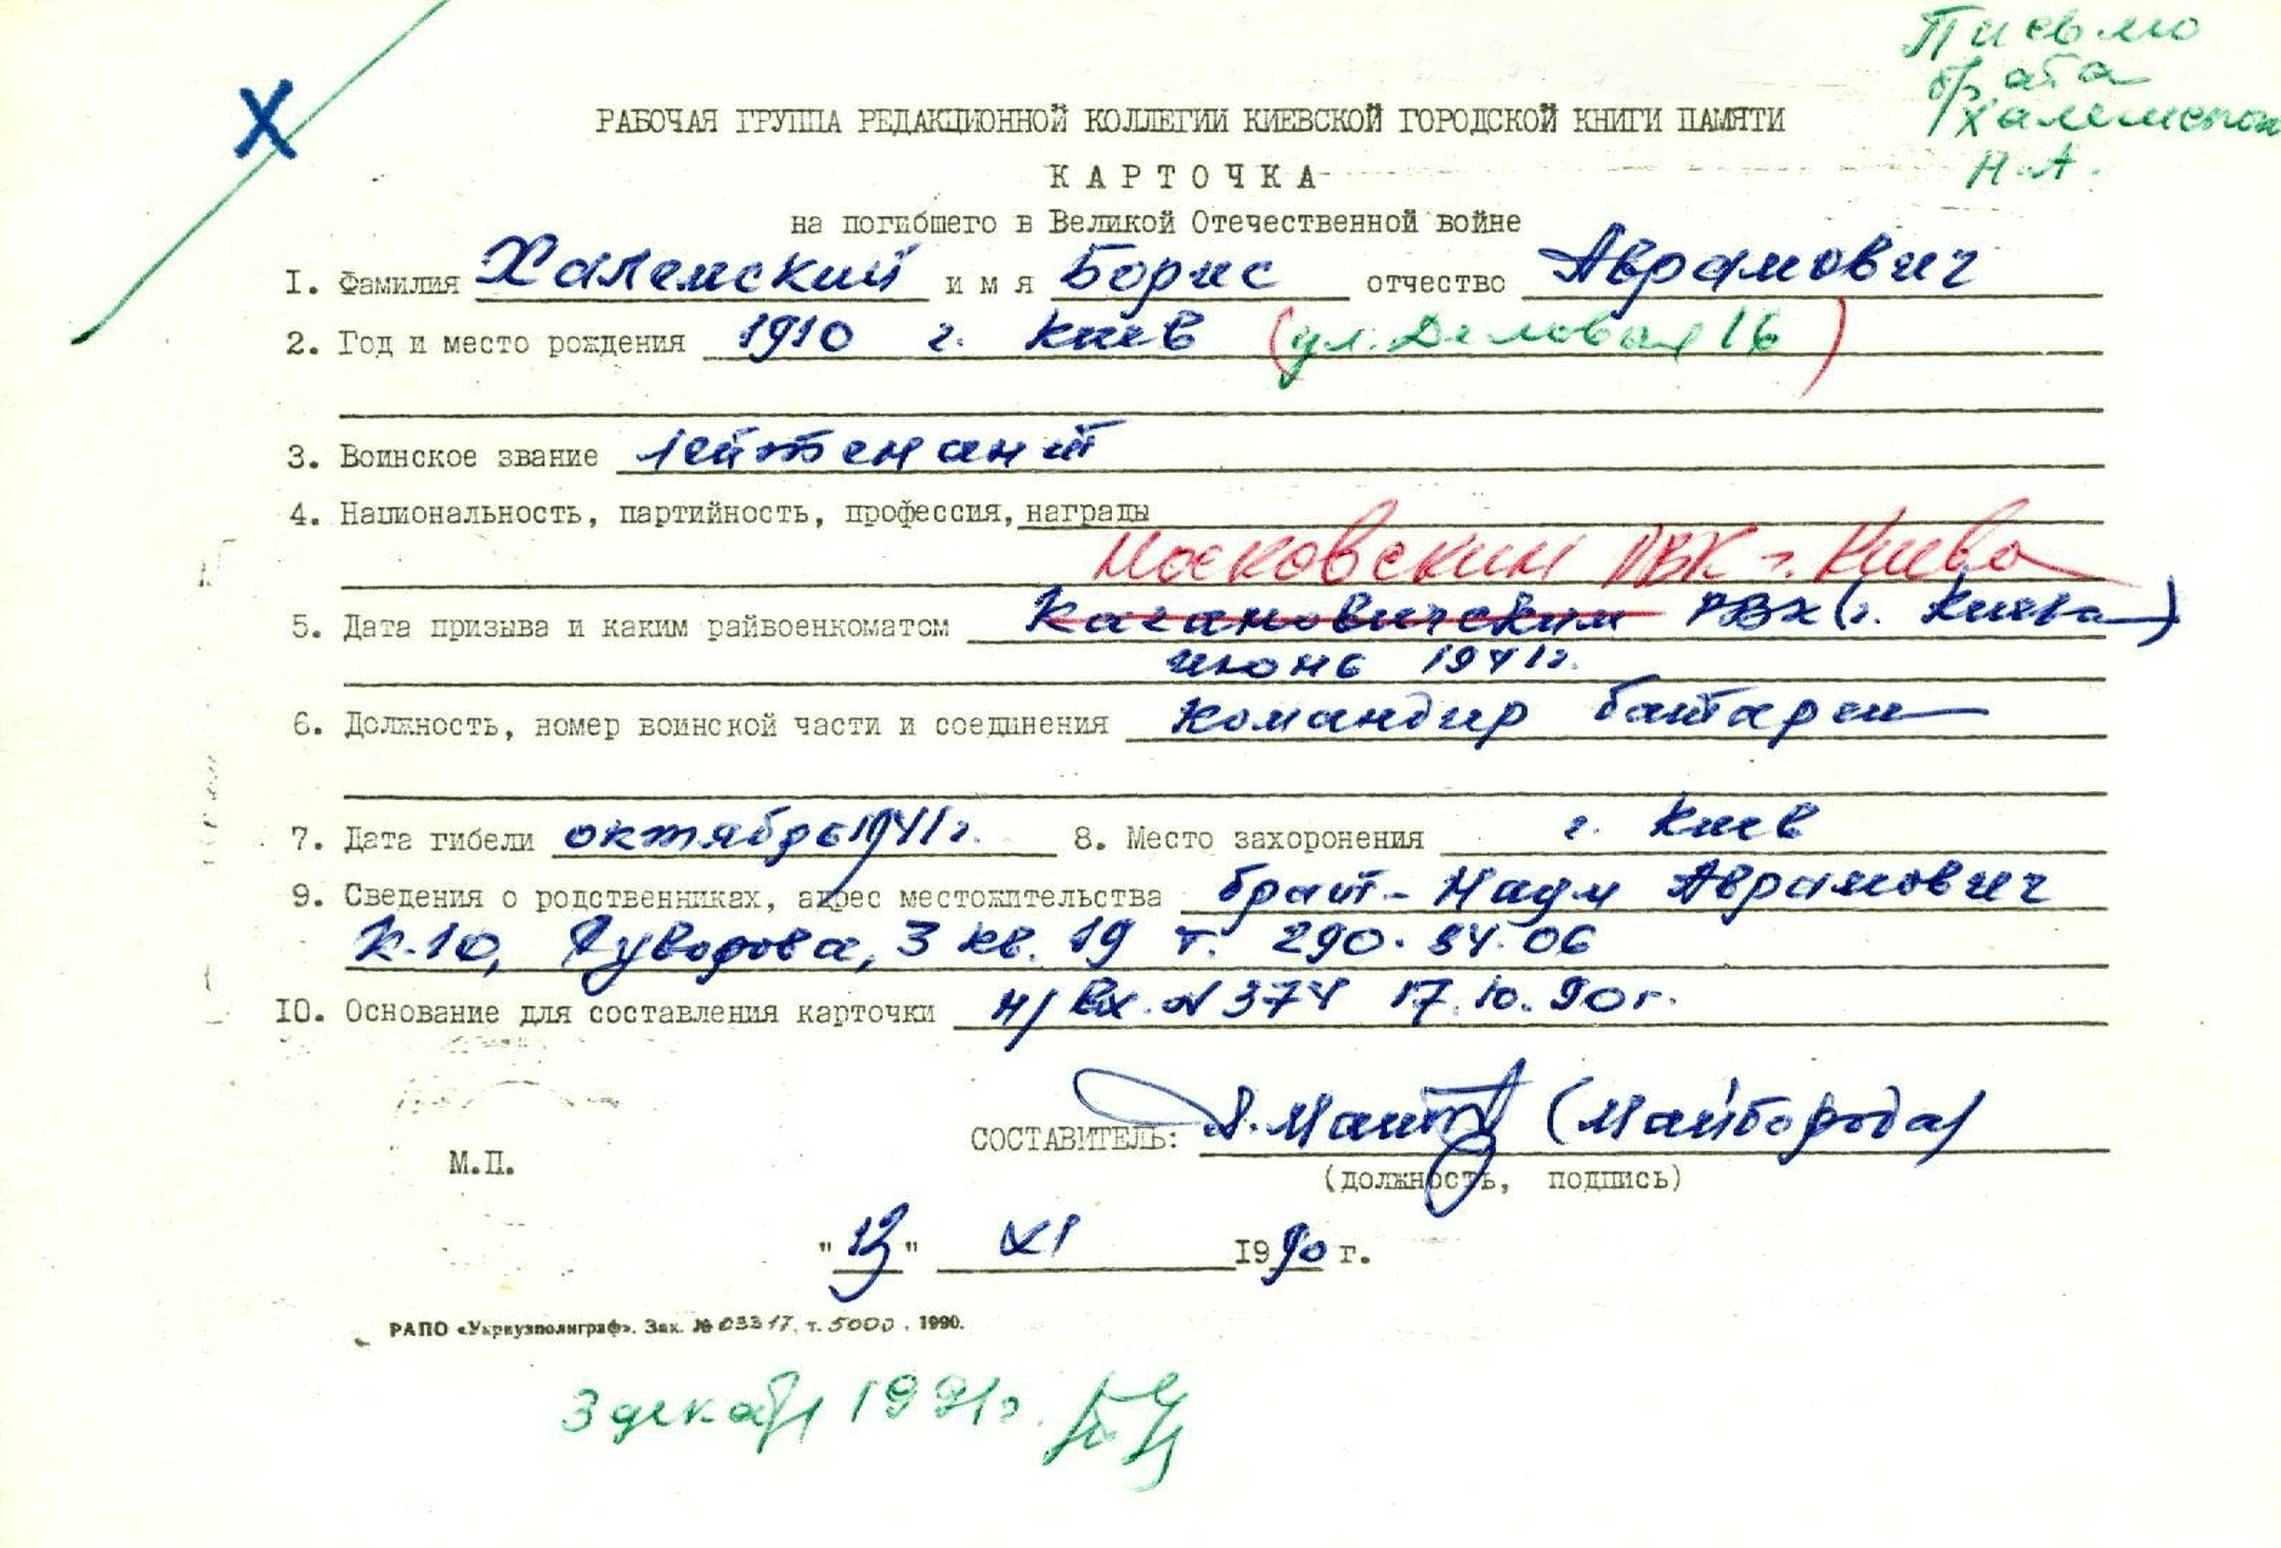 Письмо
брата
Халемского
Н.А.
Х
РАБОЧАЯ ГРУППА РЕДАКЦИОННОЙ КОЛЛЕГИИ КИЕВСКОЙ ГОРОДСКОЙ КНИГИ ПАМЯТИ
КАРТОЧКА
на погибшего в Великой Отечественной войне
I. Фамилия Халемский имя Борис отчество Аврамович
2. Год и место рождения 1910 г. Киев (ул. Деловая 16)
3. Воинское звание лейтенант
4. Национальность, партийность, профессия, награды
Московским РВК г. Киева
5. Дата призыва и каким райвоенкоматом Кагановичским РВК (г. Киева)
июнь 1941г.
6. Должность, номер воинской части и соединения Командир батареи
7. Дата гибели октябрь 1941г. 8. Место захоронения г. Киев
9. Сведения о родственниках, адрес местожительства брат - Наум Аврамович
К-10, Суворова, 3 кв. 19 т. 290-34-06
10. Основание для составления карточки н/вх. № 374 17.10.90г.
СОСТАВИТЕЛЬ: (Майборода)
М.П.
(должность, подпись)
" " XI 1990 г.
РАПО «Укрвузполиграф». Зак. № 03317, т. 5000. 1990.
3 декабря 1991г.